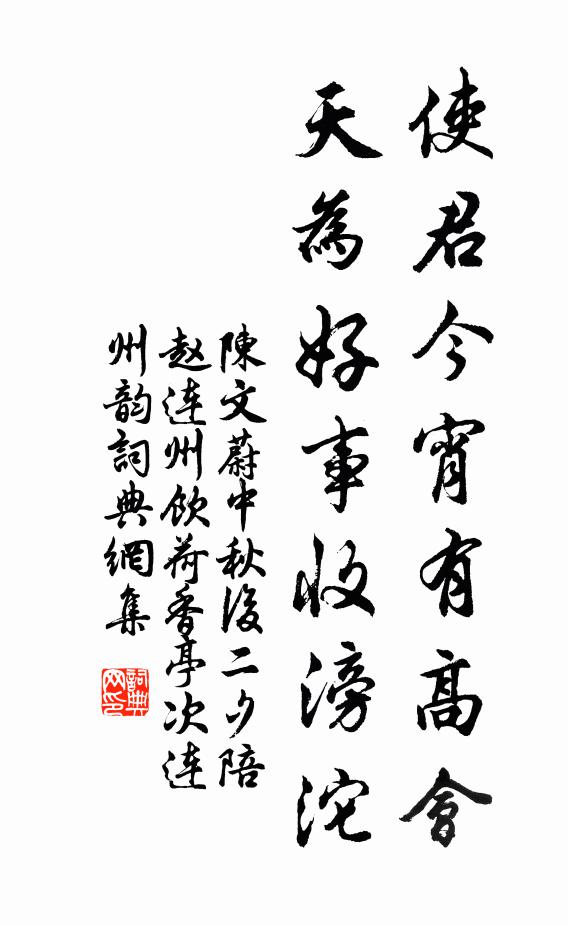 使君今宵有高會
天為好事收滂沱
陳文蔚中秋後二夕陪
赵连州飲荷香亭次连
州韵詞典網集
詞典网印